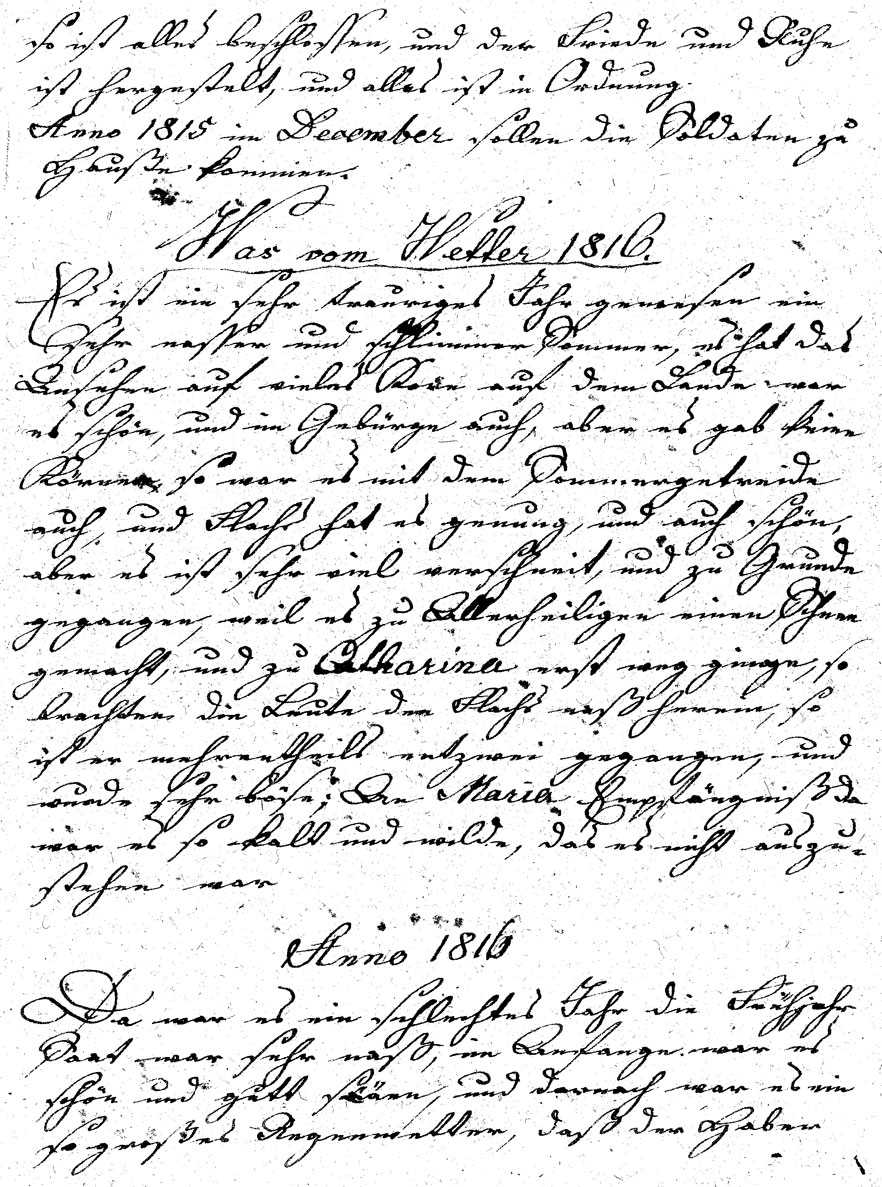 so ist alles beschlossen, und der Friede und Ruhe
ist hergestelt, und alles ist in Ordnung.
Anno 1815 im December sollen die Soldaten zu
Hauße kommen.
Was vom Wetter 1816.
Es ist ein sehr trauriges Jahr gewesen ein
Sehr nasser und schlimmer Sommer, es hat das
Ansehen auf vieles Korn auf dem Lande war
es schön, und im Gebürge auch, aber es gab keine
Körner, so war es mit dem Sommergetreide
auch, und Flachs hat es genung, und auch schön,
aber es ist sehr viel verschneit, und zu Grunde
gegangen, weil es zu Allerheiligen einen Schnee
gemacht, und zu Catharina erst weg ginge, so
brachten die Leute den Flachs naß herein, so
ist er mehrentheils entzwei gegangen, und
wurde sehr böse; An Maria Empfängniß da
war es so kalt und wilde, das es nicht auszu-
stehen war
Anno 1816
Da war es ein schlechtes Jahr die Frühjahr
Saat war sehr naß, im Anfange war es
schön und gutt säen, und darnach war es ein
so großes Regenwetter, daß der Haber